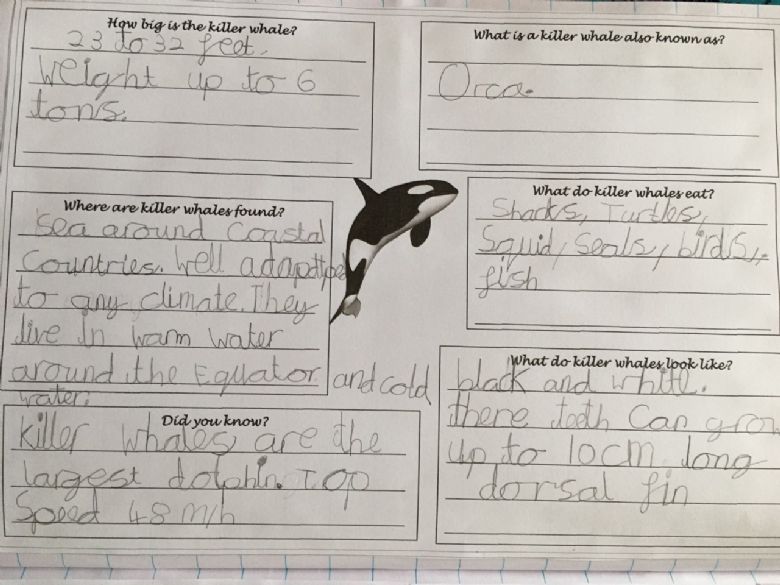 How big is the killer whale?
23 to 32 feet.
Weight up to 6
tons.
What is a killer whale also known as?
Orca.
Where are killer whales found?
Sea around Coastal
Countries. Well adapdtped
to any climate. They
live In warm water
around the Equator and cold
water.
What do killer whales eat?
Sharks, Turtles,
Squid, Seals, birds,
fish
What do killer whales look like?
black and white.
there teeth Can grow
up to 10cm long
dorsal fin
Did you know?
Killer whales are the
largest dolphin. Top
Speed 48 m/h